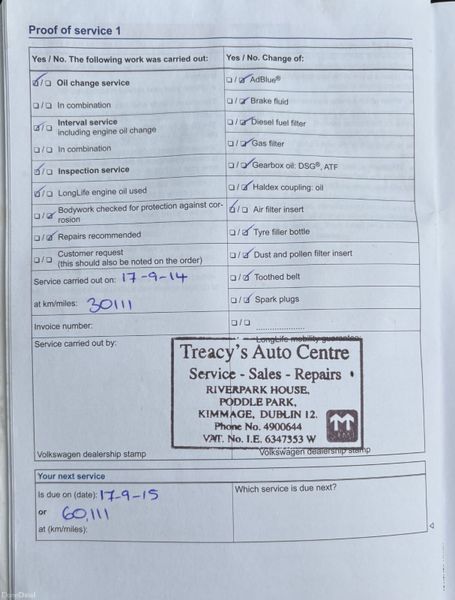 Proof of service 1
Yes / No. The following work was carried out:
☑/☐ Oil change service
☐/☐ In combination
☑/☐ Interval service
including engine oil change
☐/☐ In combination
☑/☐ Inspection service
☑/☐ LongLife engine oil used
☐/☑ Bodywork checked for protection against cor-
rosion
☐/☑ Repairs recommended
☐/☐ Customer request
(this should also be noted on the order)
Service carried out on: 17-9-14
at km/miles: 30111
Invoice number:
Yes / No. Change of:
☐/☑ AdBlue®
☐/☑ Brake fluid
☐/☑ Diesel fuel filter
☐/☑ Gas filter
☐/☑ Gearbox oil: DSG®, ATF
☐/☑ Haldex coupling: oil
☑/☐ Air filter insert
☐/☑ Tyre filler bottle
☐/☑ Dust and pollen filter insert
☐/☑ Toothed belt
☐/☑ Spark plugs
☐/☐ ....................
Service carried out by:
LongLife mobility guarantee
Treacy's Auto Centre
Service - Sales - Repairs
RIVERPARK HOUSE,
PODDLE PARK,
KIMMAGE, DUBLIN 12.
Phone No. 4900644
VAT. No. I.E. 6347353 W
Volkswagen dealership stamp
Volkswagen dealership stamp
Your next service
Is due on (date): 17-9-15
or 60,111
at (km/miles):
Which service is due next?
DoneDeal